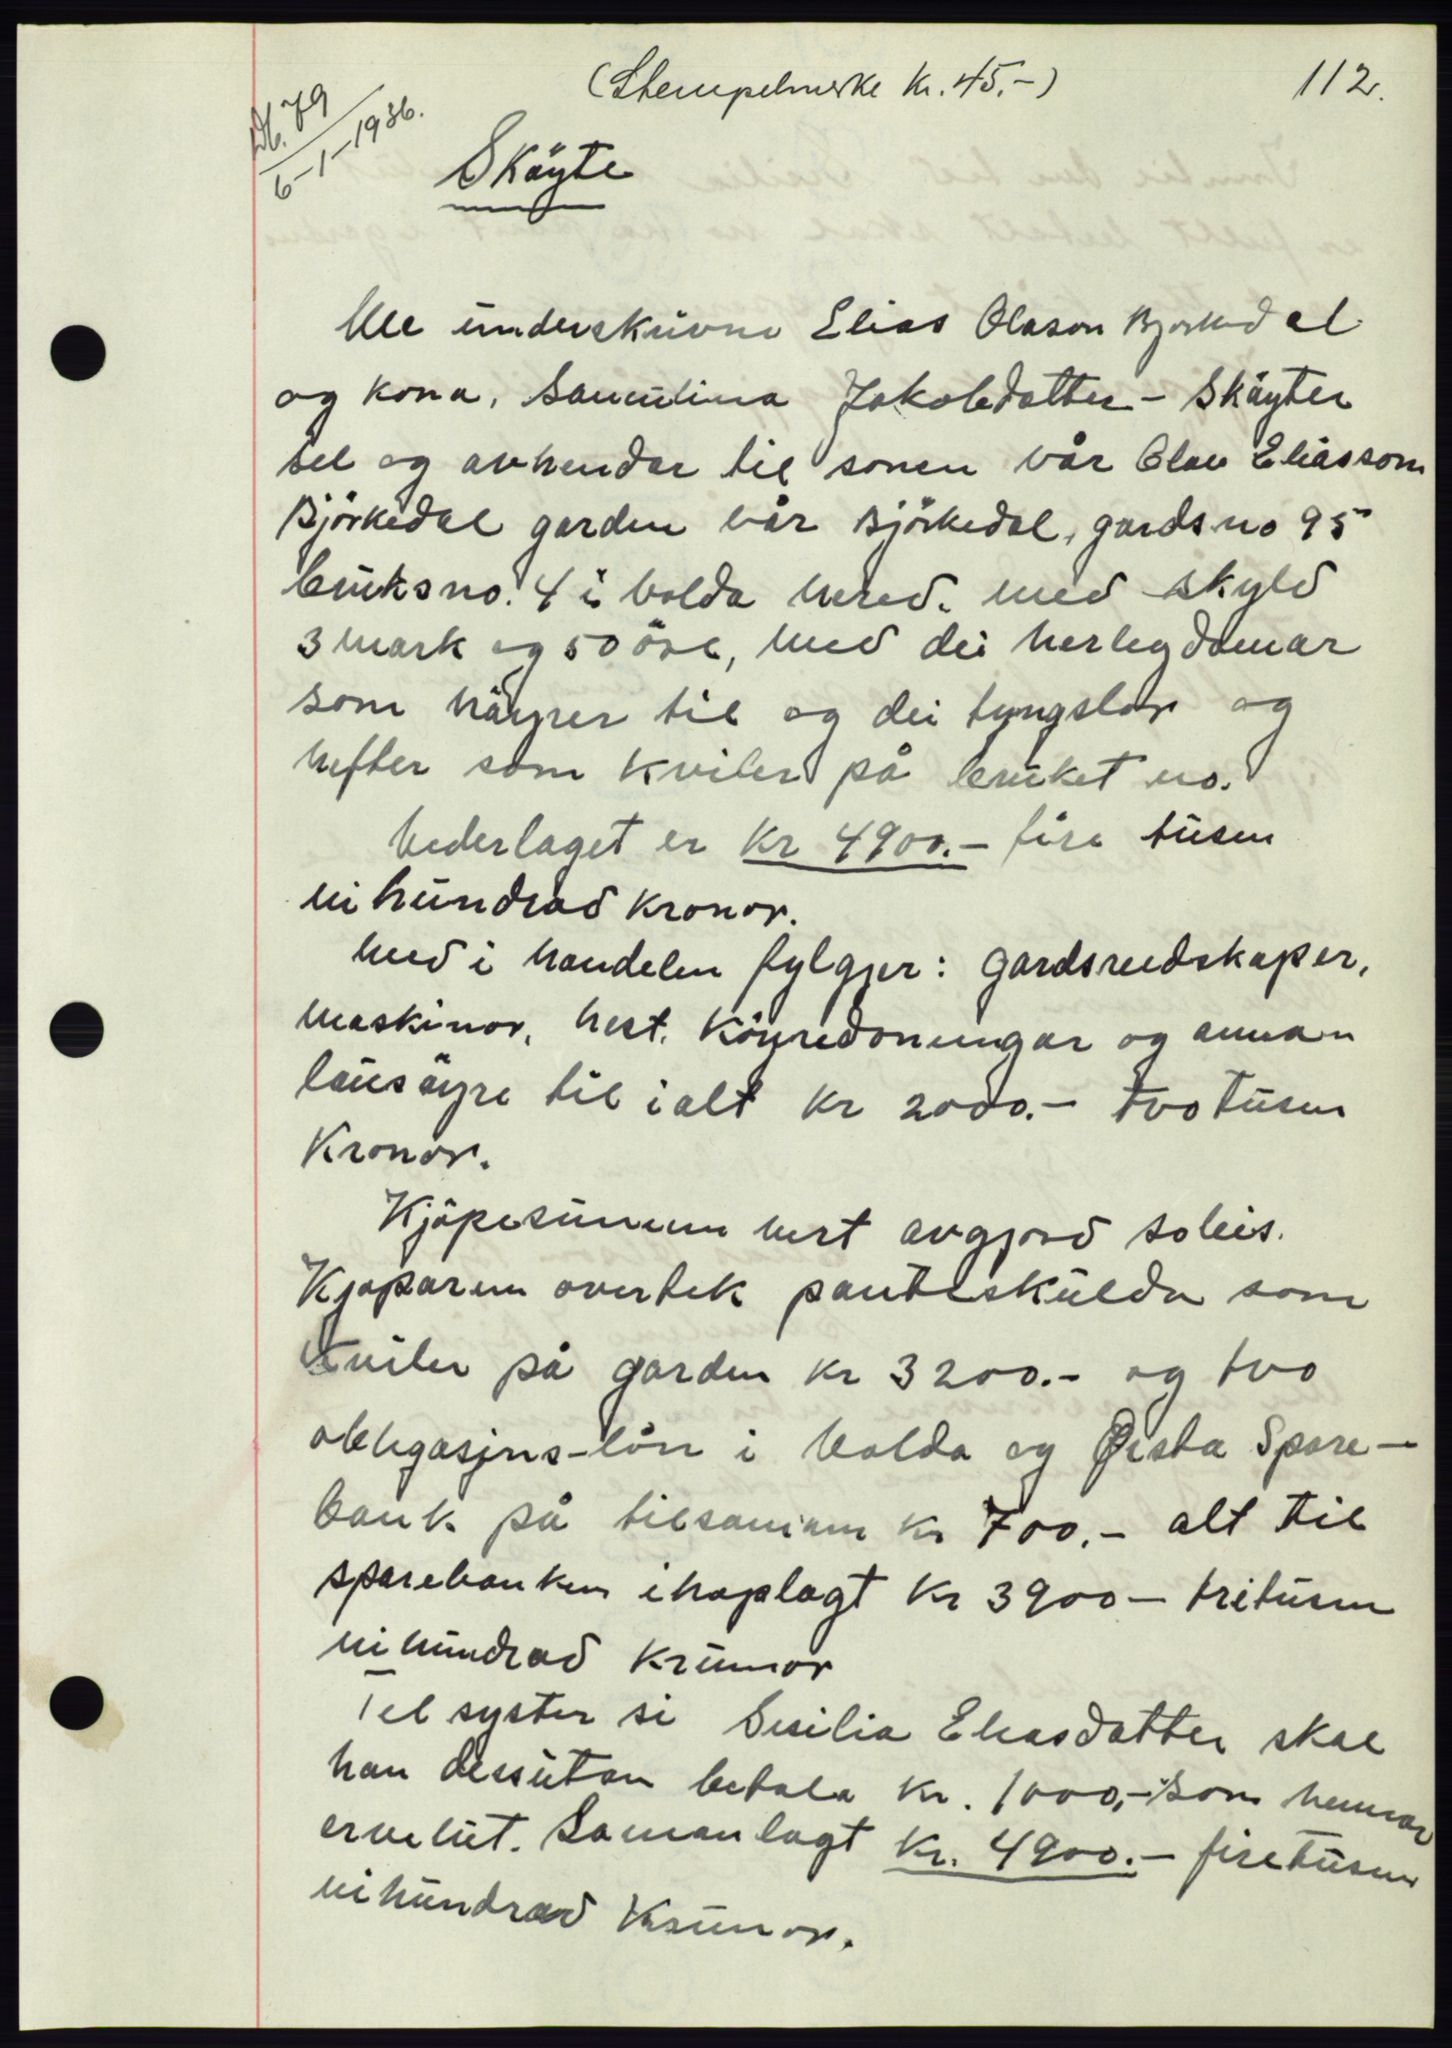 (Stempelmerke kr. 45.-)
112.
Db. 79
6-1-1936.
Sköyte
Me underskrivne Elias Olason Bjørkedal
og kona, Samulina Jakobdatter - Sköyter
sel og avhendar til sonen vår Olav Eliasson
Björkedal garden vår Björkedal, gards no 95
bruks no. 4 i Volda hered. med skyld
3 mark og 50 öre, med dei herlegdomar
som höyrer til og dei tyngslor og
hefter som kviler på bruket no.
Vederlaget er Kr 4900.- fire tusen
nihundrad kronor.
Med i handelen fylgjer: gardsreidskaper,
maskinor, hest, köyredoningar og annan
lausöyre til ialt kr 2000.- tvo tusen
Kronor.
Kjöpesummen vert avgjord soleis.
Kjøparen overtek panteskulda som
kviler på garden kr 3200.- og tvo
obligasjns-lån i Volda og Ørsta Spare-
bank på tilsamam kr 700.- alt til
sparebanken ihoplagt kr 3900 - tritusen
nihundrad krunor
Til syster si Sesilia Eliasdatter skal
han dessutan betala kr. 1000,- som hennar
arvelut. Samanlagt kr. 4900.- firetusen
nihundrad Krunor.